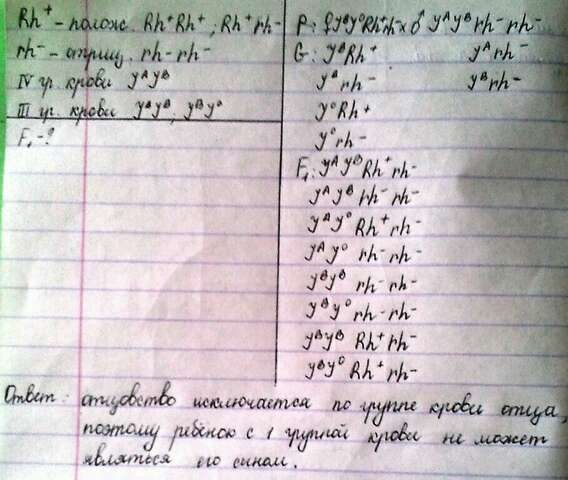 Rh⁺ – полож. Rh⁺Rh⁺, Rh⁺rh⁻
rh⁻ – отриц. rh⁻rh⁻
IV гр. крови Y^A Y^B
III гр. крови Y^B Y^B; Y^B Y^O
F₁ - ?
P: ♀ Y^B Y^O Rh⁺rh⁻ × ♂ Y^A Y^B rh⁻ rh⁻
G: Y^B Rh⁺ Y^A rh⁻
Y^B rh⁻ Y^B rh⁻
Y^O Rh⁺
Y^O rh⁻
F₁: Y^A Y^B Rh⁺ rh⁻
Y^A Y^B rh⁻ rh⁻
Y^A Y^O Rh⁺ rh⁻
Y^A Y^O rh⁻ rh⁻
Y^B Y^B rh⁻ rh⁻
Y^B Y^O rh⁻ rh⁻
Y^B Y^B Rh⁺ rh⁻
Y^B Y^O Rh⁺ rh⁻
Ответ: отцовство исключается по группе крови отца,
поэтому ребёнок с 1 группой крови не может
являться его сыном.